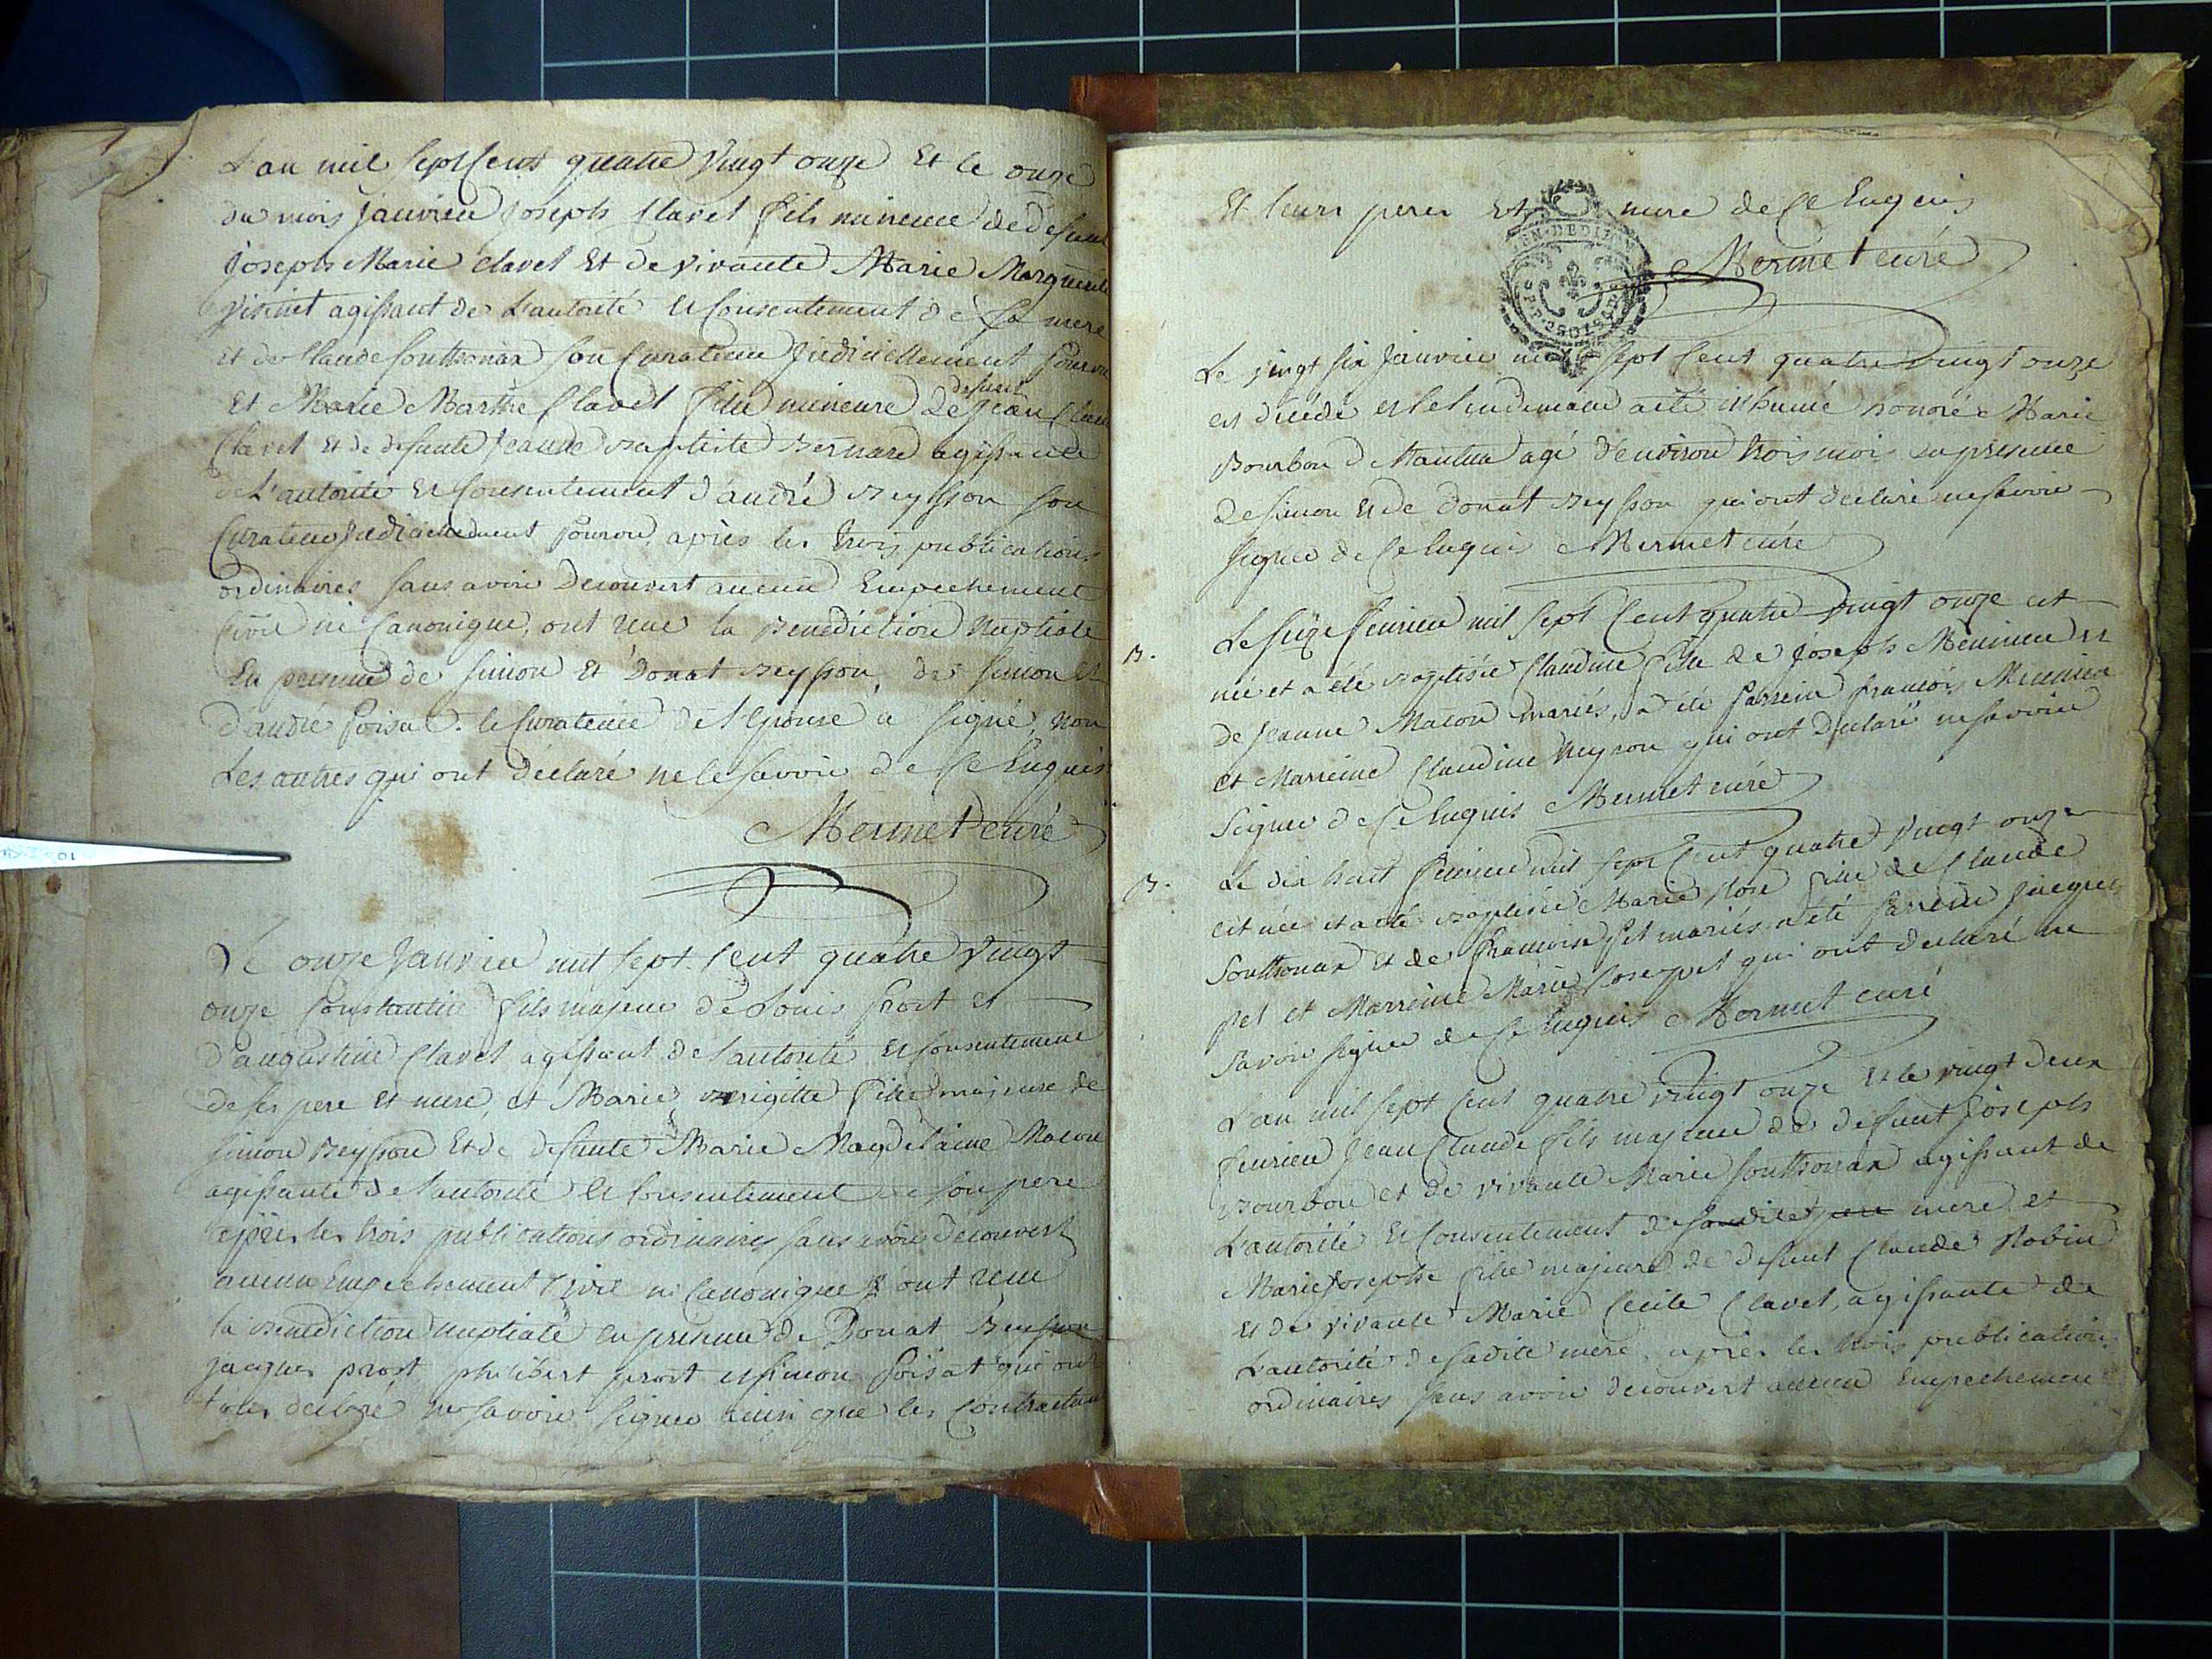 L'an mil sept cent quatre vingt onze Et le onze
du mois janvier joseph Clavel fils mineur de defunt
joseph Marie clavel Et de vivante Marie Marguerite
agissant de l'autorité et Consentement de sa mere
et de Claude Southonax son Curateur judiciellement Pourvu
Et Marie Marthe Clavel fille mineure de defunt jean Claude
Clavel Et de defunte jeanne Baptiste Bernard agissante
de L'autorité et Consentement d'andré Beysson son
Curateur judiciellement Pourvu, après les trois publications
ordinaires sans avoir Decouvert aucun Empechement
Civil ni Canonique, ont reçu la Benediction Nuptiale
En presence de simon Et Donat Beysson, de simon et
d'andré Poisat. le Curateur de l'Epouse a signé, non
Les autres qui ont déclaré ne le savoir de ce Enquis
Mermet curé
Le onze janvier mil sept cent quatre vingt
onze Constantin fils majeur de Louis Prost et
d'augustine Clavel agissant de l'autorité et Consentement
de ses pere et mere, et Marie Brigitte fille majeure de
simon Beysson Et de defunte Marie Magdelaine Macon
agissante de l'autorité et Consentement de son pere
après les trois publications ordinaires sans avoir decouvert
aucun Empechement Civil ni Canonique ont reçu
la Benediction nuptiale en presence de Donat Beysson
jacques prost philibert prost et simon Poisat qui ont
tous declaré ne savoir signer ainsi que les Contractans
Et leurs peres Et mere de ce Enquis
Mermet curé
Le vingt six janvier mil sept cent quatre vingt onze
est décédé et le lendemain a été inhumé honoré Marie
Bourbon de Nantua agé d'environ trois mois en presence
de simon et de donat Beysson qui ont declaré ne savoir
signer de ce enquis Mermet curé
B. Le seize fevrier mil sept cent quatre vingt onze est
née et a été Baptisée Claudine fille de joseph Meunier et
de jeanne Macon mariés, a été Parrein françois Meunier
et Marreine Claudine Neyron qui ont Declaré ne savoir
Signer de ce Enquis Mermet curé
B. Le dix huit fevrier mil sept cent quatre vingt onze
est née et a été Baptisée Marie Rose fille de Claude
Southonax et de francoise mariés a été Parrein jacques
et Marreine Marie qui ont declaré ne
savoir signer de ce enquis Mermet curé
L'an mil sept cent quatre vingt onze et le vingt deux
fevrier jean Claude fils majeur de defunt joseph
Bourbon et de vivante Marie Southonax agissant de
L'autorité et Consentement de sadite mere et
Marie josephe fille majeure de defunt Claude Robin
et de vivante Marie Cecile Clavel, agissante de
L'autorité de sadite mere, après les trois publications
ordinaires sans avoir decouvert aucun Empechement